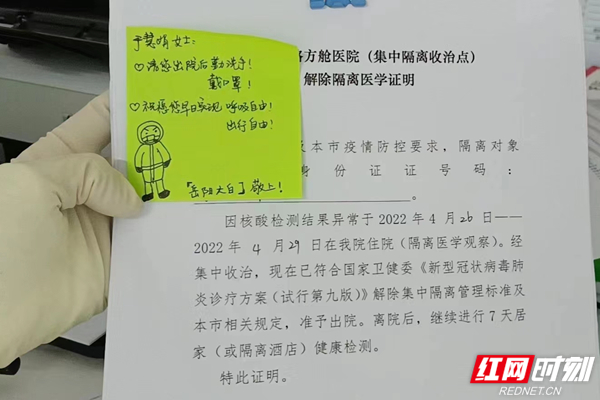 于慧娟女士：
♡请您出院后勤洗手！
戴口罩！
♡祝福您早日实现 呼吸自由！
出行自由！
「岳阳大白」敬上！
方舱医院（集中隔离收治点）
解除隔离医学证明
本市疫情防控要求，隔离对象
身份证证号码：
因核酸检测结果异常于2022年4月26日——
2022年4月29日在我院住院（隔离医学观察）。经
集中收治，现在已符合国家卫健委《新型冠状病毒肺
炎诊疗方案（试行第九版）》解除集中隔离管理标准及
本市相关规定，准予出院。离院后，继续进行7天居
家（或隔离酒店）健康检测。
特此证明。
红网时刻
REDNET.CN